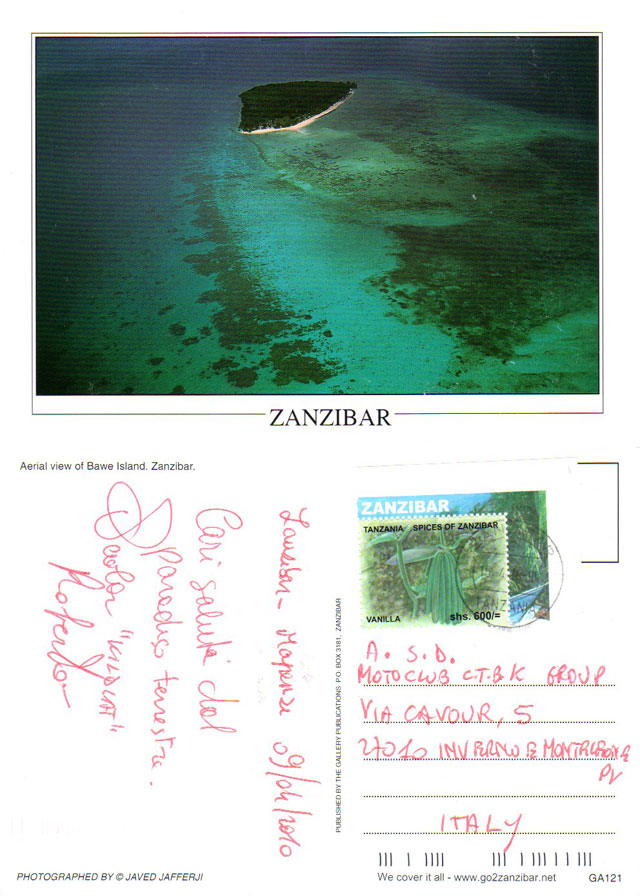 ZANZIBAR
Aerial view of Bawe Island. Zanzibar.
Zanzibar - Mapenzi 09/04/2010
Cari saluti dal
Paradiso terrestre.
Roberto
PUBLISHED BY THE GALLERY PUBLICATIONS P.O. BOX 3181, ZANZIBAR
ZANZIBAR
TANZANIA SPICES OF ZANZIBAR
VANILLA shs. 600/=
TANZANIA
A. S. D.
MOTOCLUB C.T.B.K GROUP
VIA CAVOUR, 5
27010 INVERNO E MONTELEONE
PV
ITALY
PHOTOGRAPHED BY © JAVED JAFFERJI
We cover it all - www.go2zanzibar.net GA121